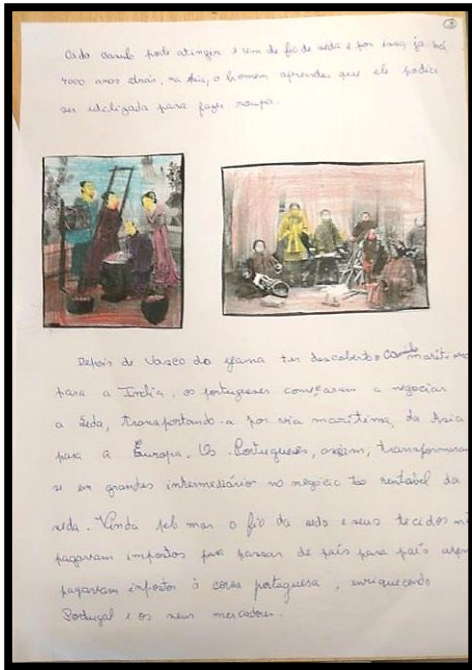 ③
Cada casulo pode atingir 1 km de fio de seda e por isso, já há
4000 anos atrás, na Ásia, o homem aprendeu que ele podia
ser utilizada para fazer roupa.
Depois de Vasco da gama ter descoberto o Caminho marítimo
para a India, os portugueses começaram a negociar
a Seda, transportando-a por via marítima, da Asia
para a Europa. Os Portugueses, assim, transformaram
se em grandes intermediário no negócio tão rentabel da
seda. Vinda pelo mar o fio da seda e seus tecidos
pagavam impostos para passar de país para país
pagavam impostos à coroa portuguesa, enriquecendo
Portugal e os seus mercadores.